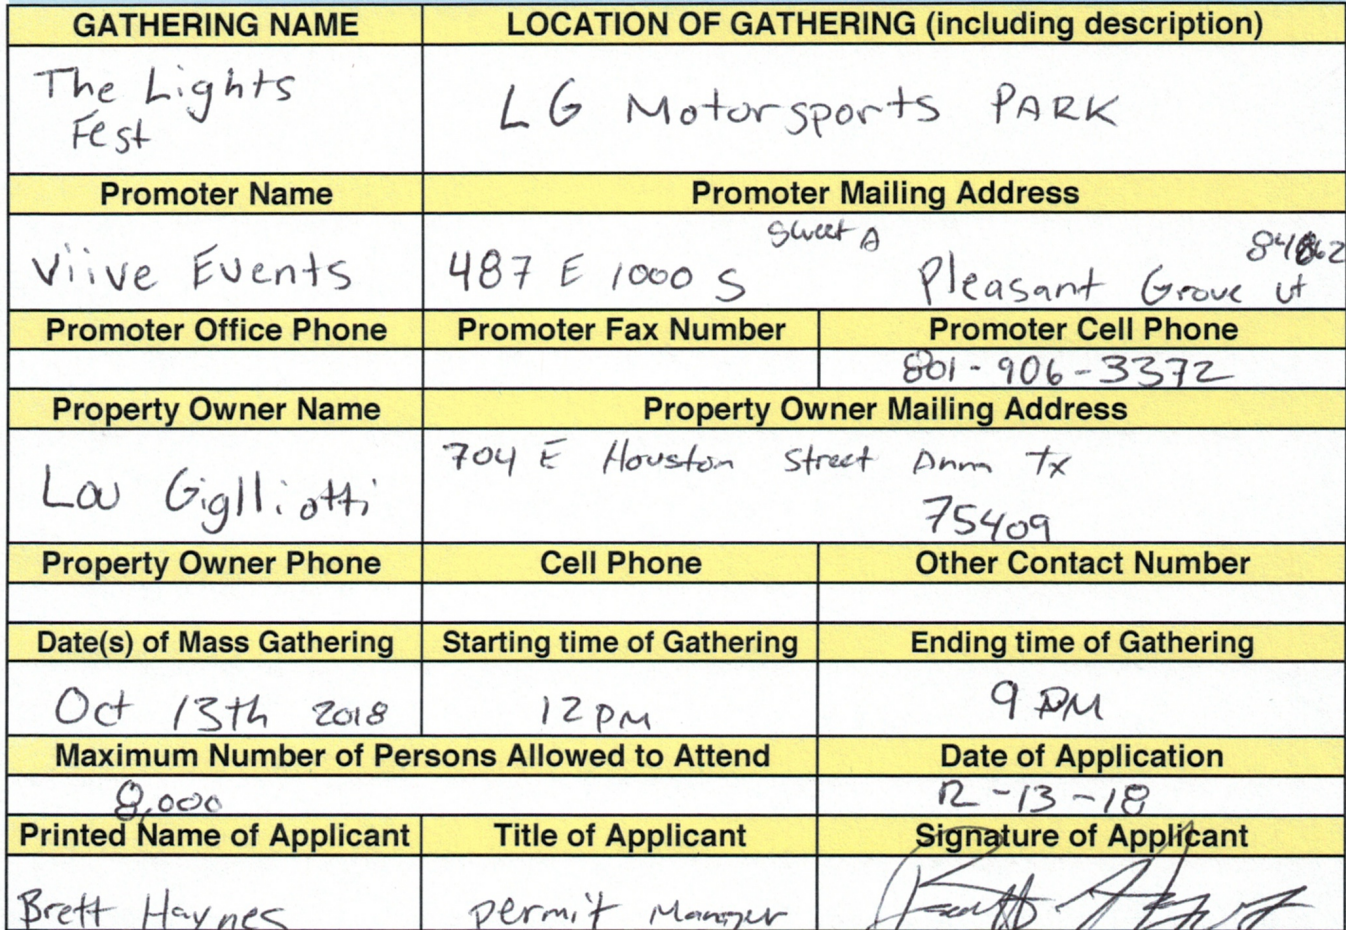 GATHERING NAME LOCATION OF GATHERING (including description)
The Lights
Fest
LG Motorsports PARK
Promoter Name Promoter Mailing Address
Viive Events
487 E 1000 S Sweet A Pleasant Grove Ut
Promoter Office Phone Promoter Fax Number Promoter Cell Phone
801-906-3372
Property Owner Name Property Owner Mailing Address
Lou Giglliotti
704 E Houston Street Tx
75409
Property Owner Phone Cell Phone Other Contact Number
Date(s) of Mass Gathering Starting time of Gathering Ending time of Gathering
Oct 13th 2018 12 PM 9 PM
Maximum Number of Persons Allowed to Attend Date of Application
8,000
Printed Name of Applicant Title of Applicant Signature of Applicant
Brett Haynes permit Manager